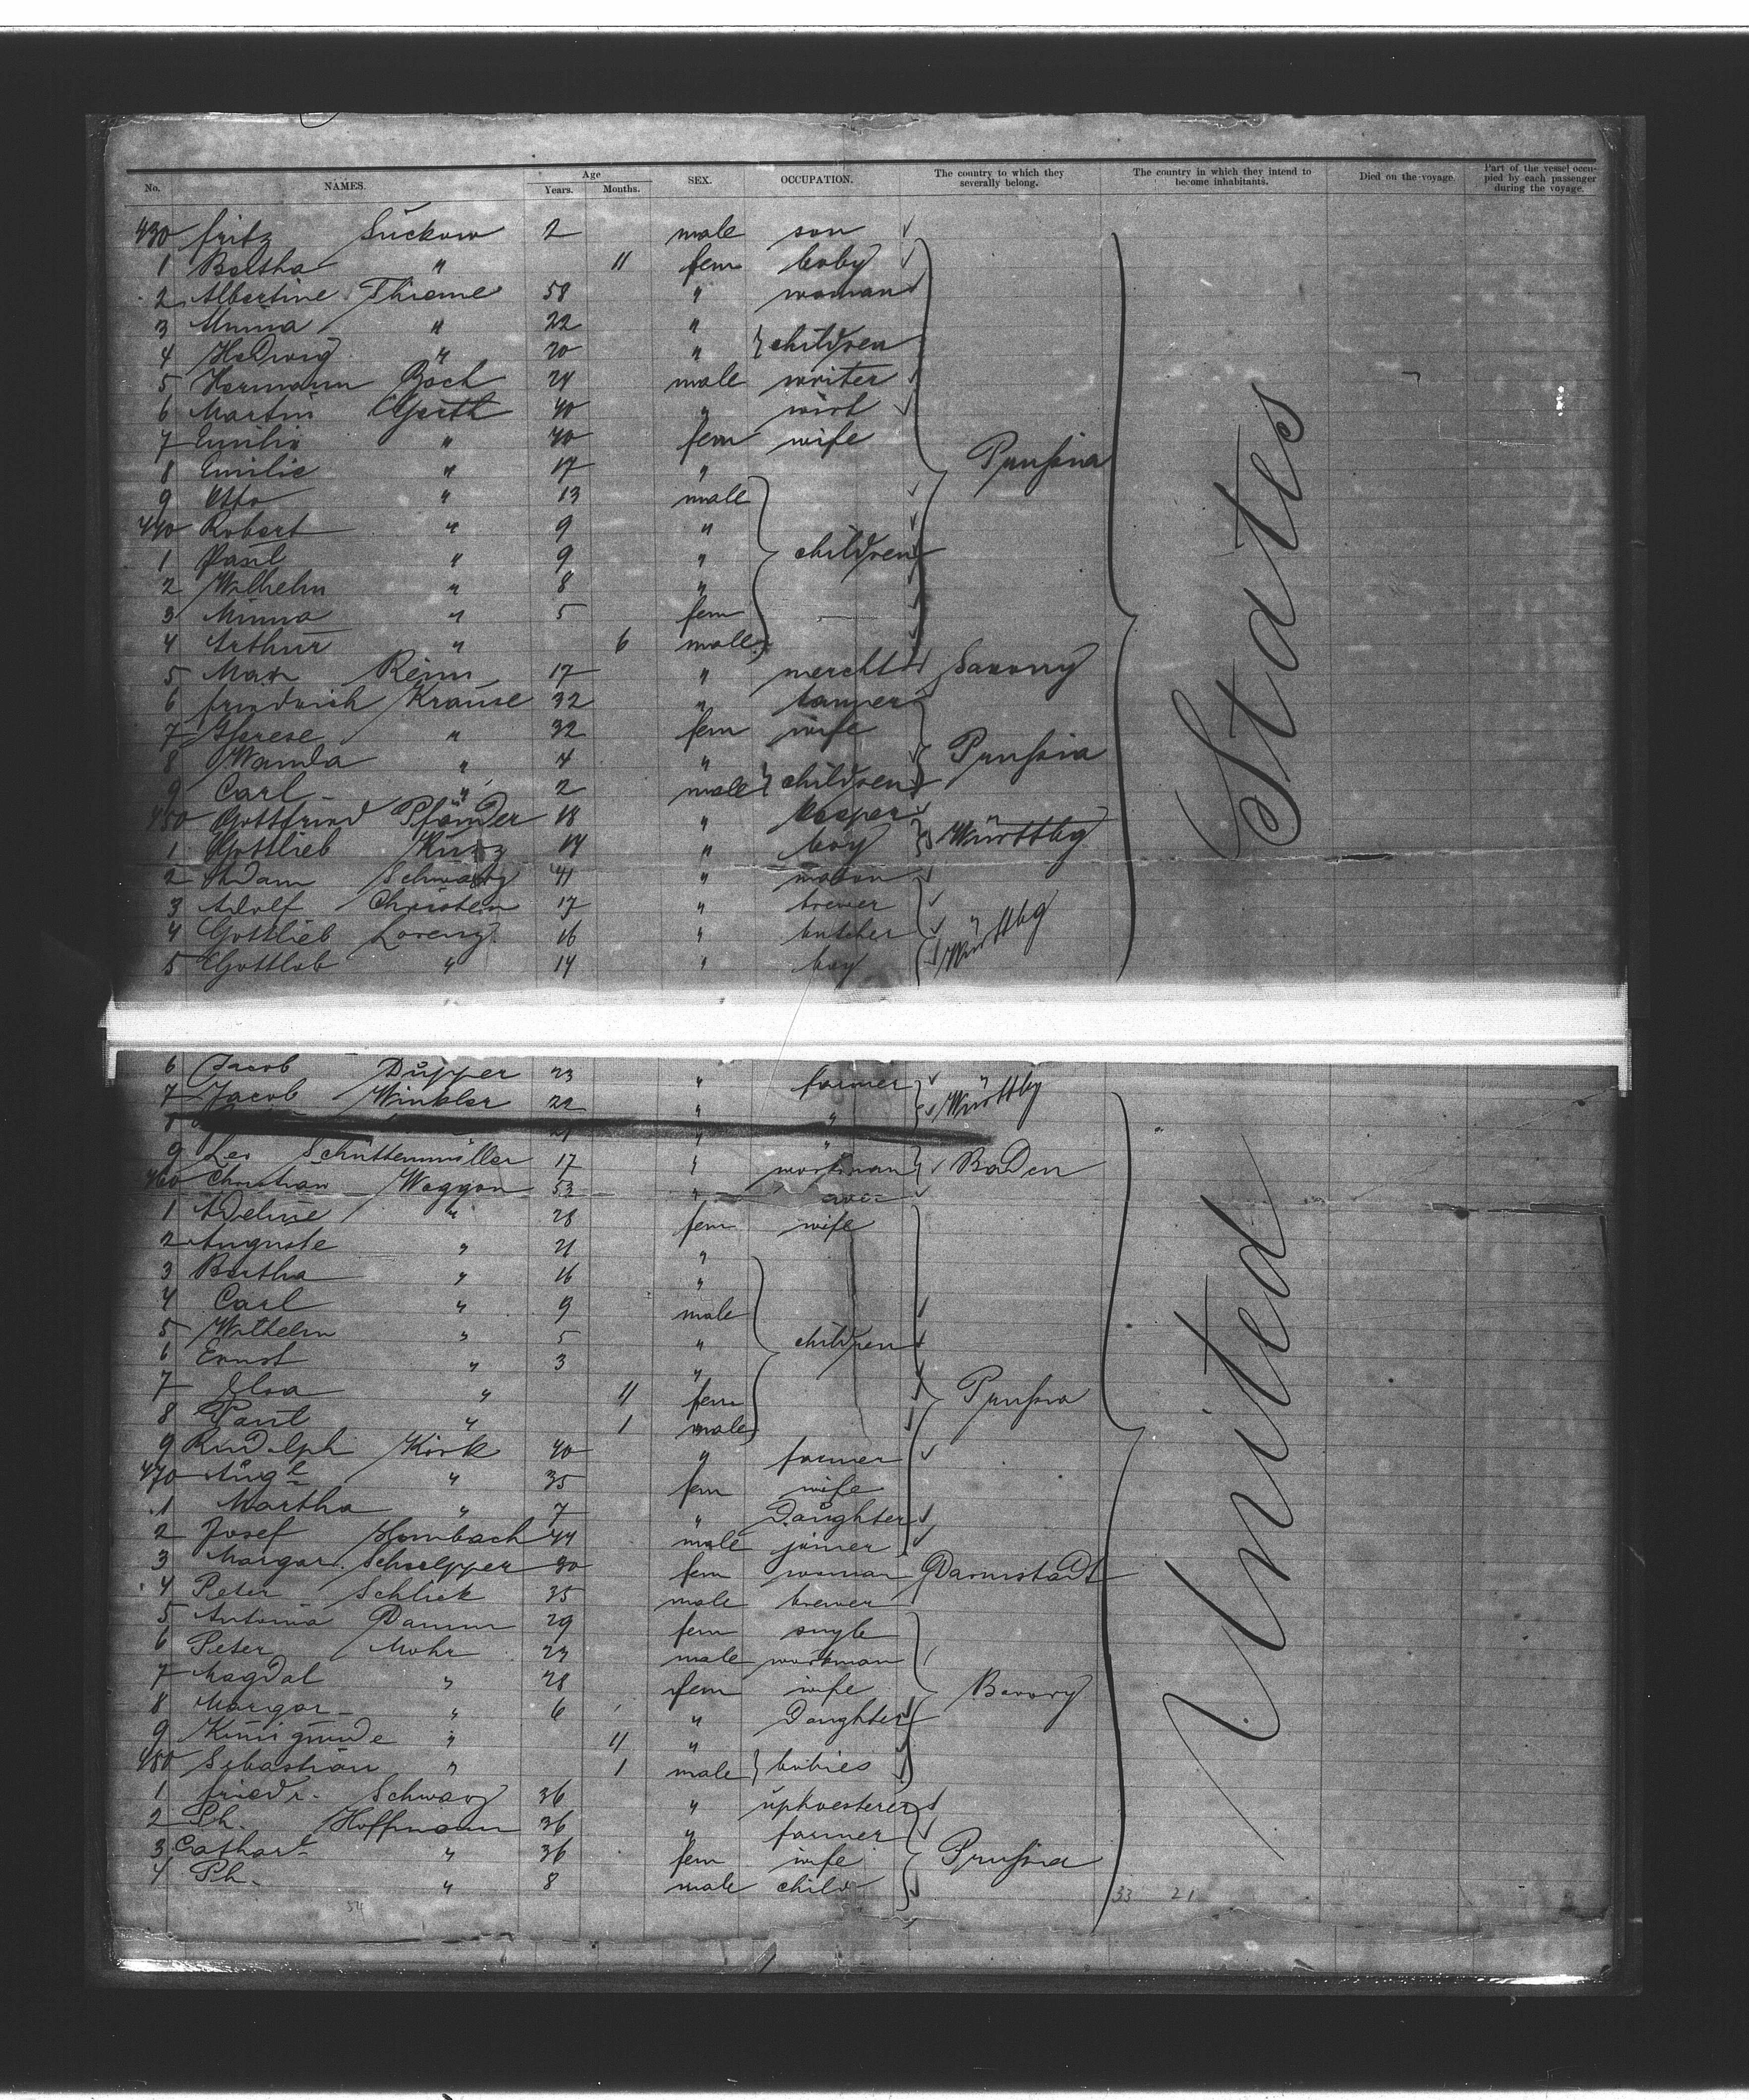 No. NAMES. Age Years. Months. SEX. OCCUPATION. The country to which they severally belong. The country in which they intend to become inhabitants. Died on the voyage. Part of the vessel occupied by each passenger during the voyage.
430 Fritz Suckow 2 male son
1 Bertha " 11 fem baby
2 Albertine Thieme 58 " woman
3 Minna " 22 "
4 Hedwig " 20 " children
5 Hermann Böch 24 male writer
6 Martin Gerth 40 " wirt
7 Emilie " 40 fem wife Prussia
8 Emilie " 17 "
9 Otto " 13 male
440 Robert " 9 "
1 Paul " 9 " children
2 Wilhelm " 8 "
3 Minna " 5 fem
4 Arthur " 6 male
5 Max Reim 17 " mercht Saxony
6 Friedrich Krause 32 "
7 Therese " 32 fem wife Prussia
8 Wanda " 4 "
9 Carl " 2 male children
450 Gottfried Pfänder 18 "
1 Gottlieb Kurz 14 " boy Württbg
2 Adam Schwarz 41 " mason
3 Adolf Christein 17 " brewer
4 Gottlieb Lorenz 16 " butcher Württbg
5 Gottlob " 14 " boy
States
6 Jacob Düpper 23 " farmer
7 Jacob Winkler 22 " " Württbg
8 21 " "
9 Leo Schüttenmüller 17 " workman Baden
460 Christian Waggon 53 "
1 Adeline " 28 fem wife
2 Auguste " 21 "
3 Bertha " 16 "
4 Carl " 9 male
5 Wilhelm " 5 " children
6 Ernst " 3 "
7 Elsa " 11 fem Prussia
8 Paul " 1 male
9 Rudolph Kirk 40 " farmer
470 Aug. " 35 fem wife
1 Martha " 7 " Daughter
2 Josef Hombach 44 male joiner
3 Margar. Schnepper 30 fem woman Darmstadt
4 Peter Schlick 35 male brewer
5 Antonia Damm 29 fem single
6 Peter Mohr 23 male workman
7 Magdal " 28 fem wife Bavary
8 Margar " 6 " Daughter
9 Kunigunde " 11 "
480 Sebastian " 1 male babies
1 Friedr. Schwarz 36 " upholsterer
2 Ph. Hoffmann 36 " farmer
3 Cathar. " 36 fem wife Prussia
4 Ph. " 8 male child
United
33 21